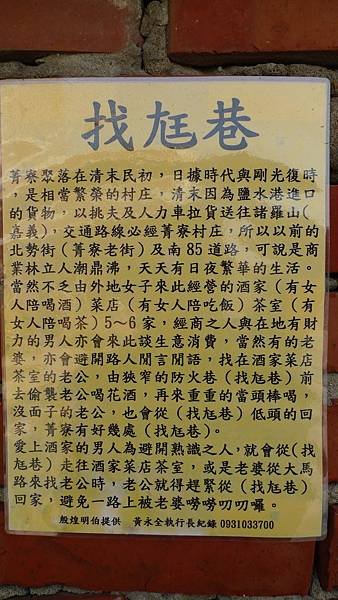 找尪巷
菁寮聚落在清末民初，日據時代與剛光復時
，是相當繁榮的村庄，清末因為鹽水港進口
的貨物，以挑夫及人力車拉貨送往諸羅山(
嘉義)，交通路線必經菁寮村庄，所以以前的
北勢街(菁寮老街)及南85道路，可說是商
業林立人潮鼎沸，天天有日夜繁華的生活。
當然不乏由外地女子來此經營的酒家(有女
人陪喝酒)菜店(有女人陪吃飯)茶室(有
女人陪喝茶)5~6家，經商之人與在地有財
力的男人亦會來此談生意消費，當然有的老
婆，亦會避開路人閒言閒語，找在酒家菜店
茶室的老公，由狹窄的防火巷(找尪巷)前
去偷襲老公喝花酒，再來重重的當頭棒喝，
沒面子的老公，也會從(找尪巷)低頭的回
家，菁寮有好幾處(找尪巷)。
愛上酒家的男人為避開熟識之人，就會從(找
尪巷)走往酒家菜店茶室，或是老婆從大馬
路來找老公時，老公就得趕緊從(找尪巷)
回家，避免一路上被老婆嘮嘮叨叨囉。
殷煌明伯提供　黃永全執行長紀錄 0931033700